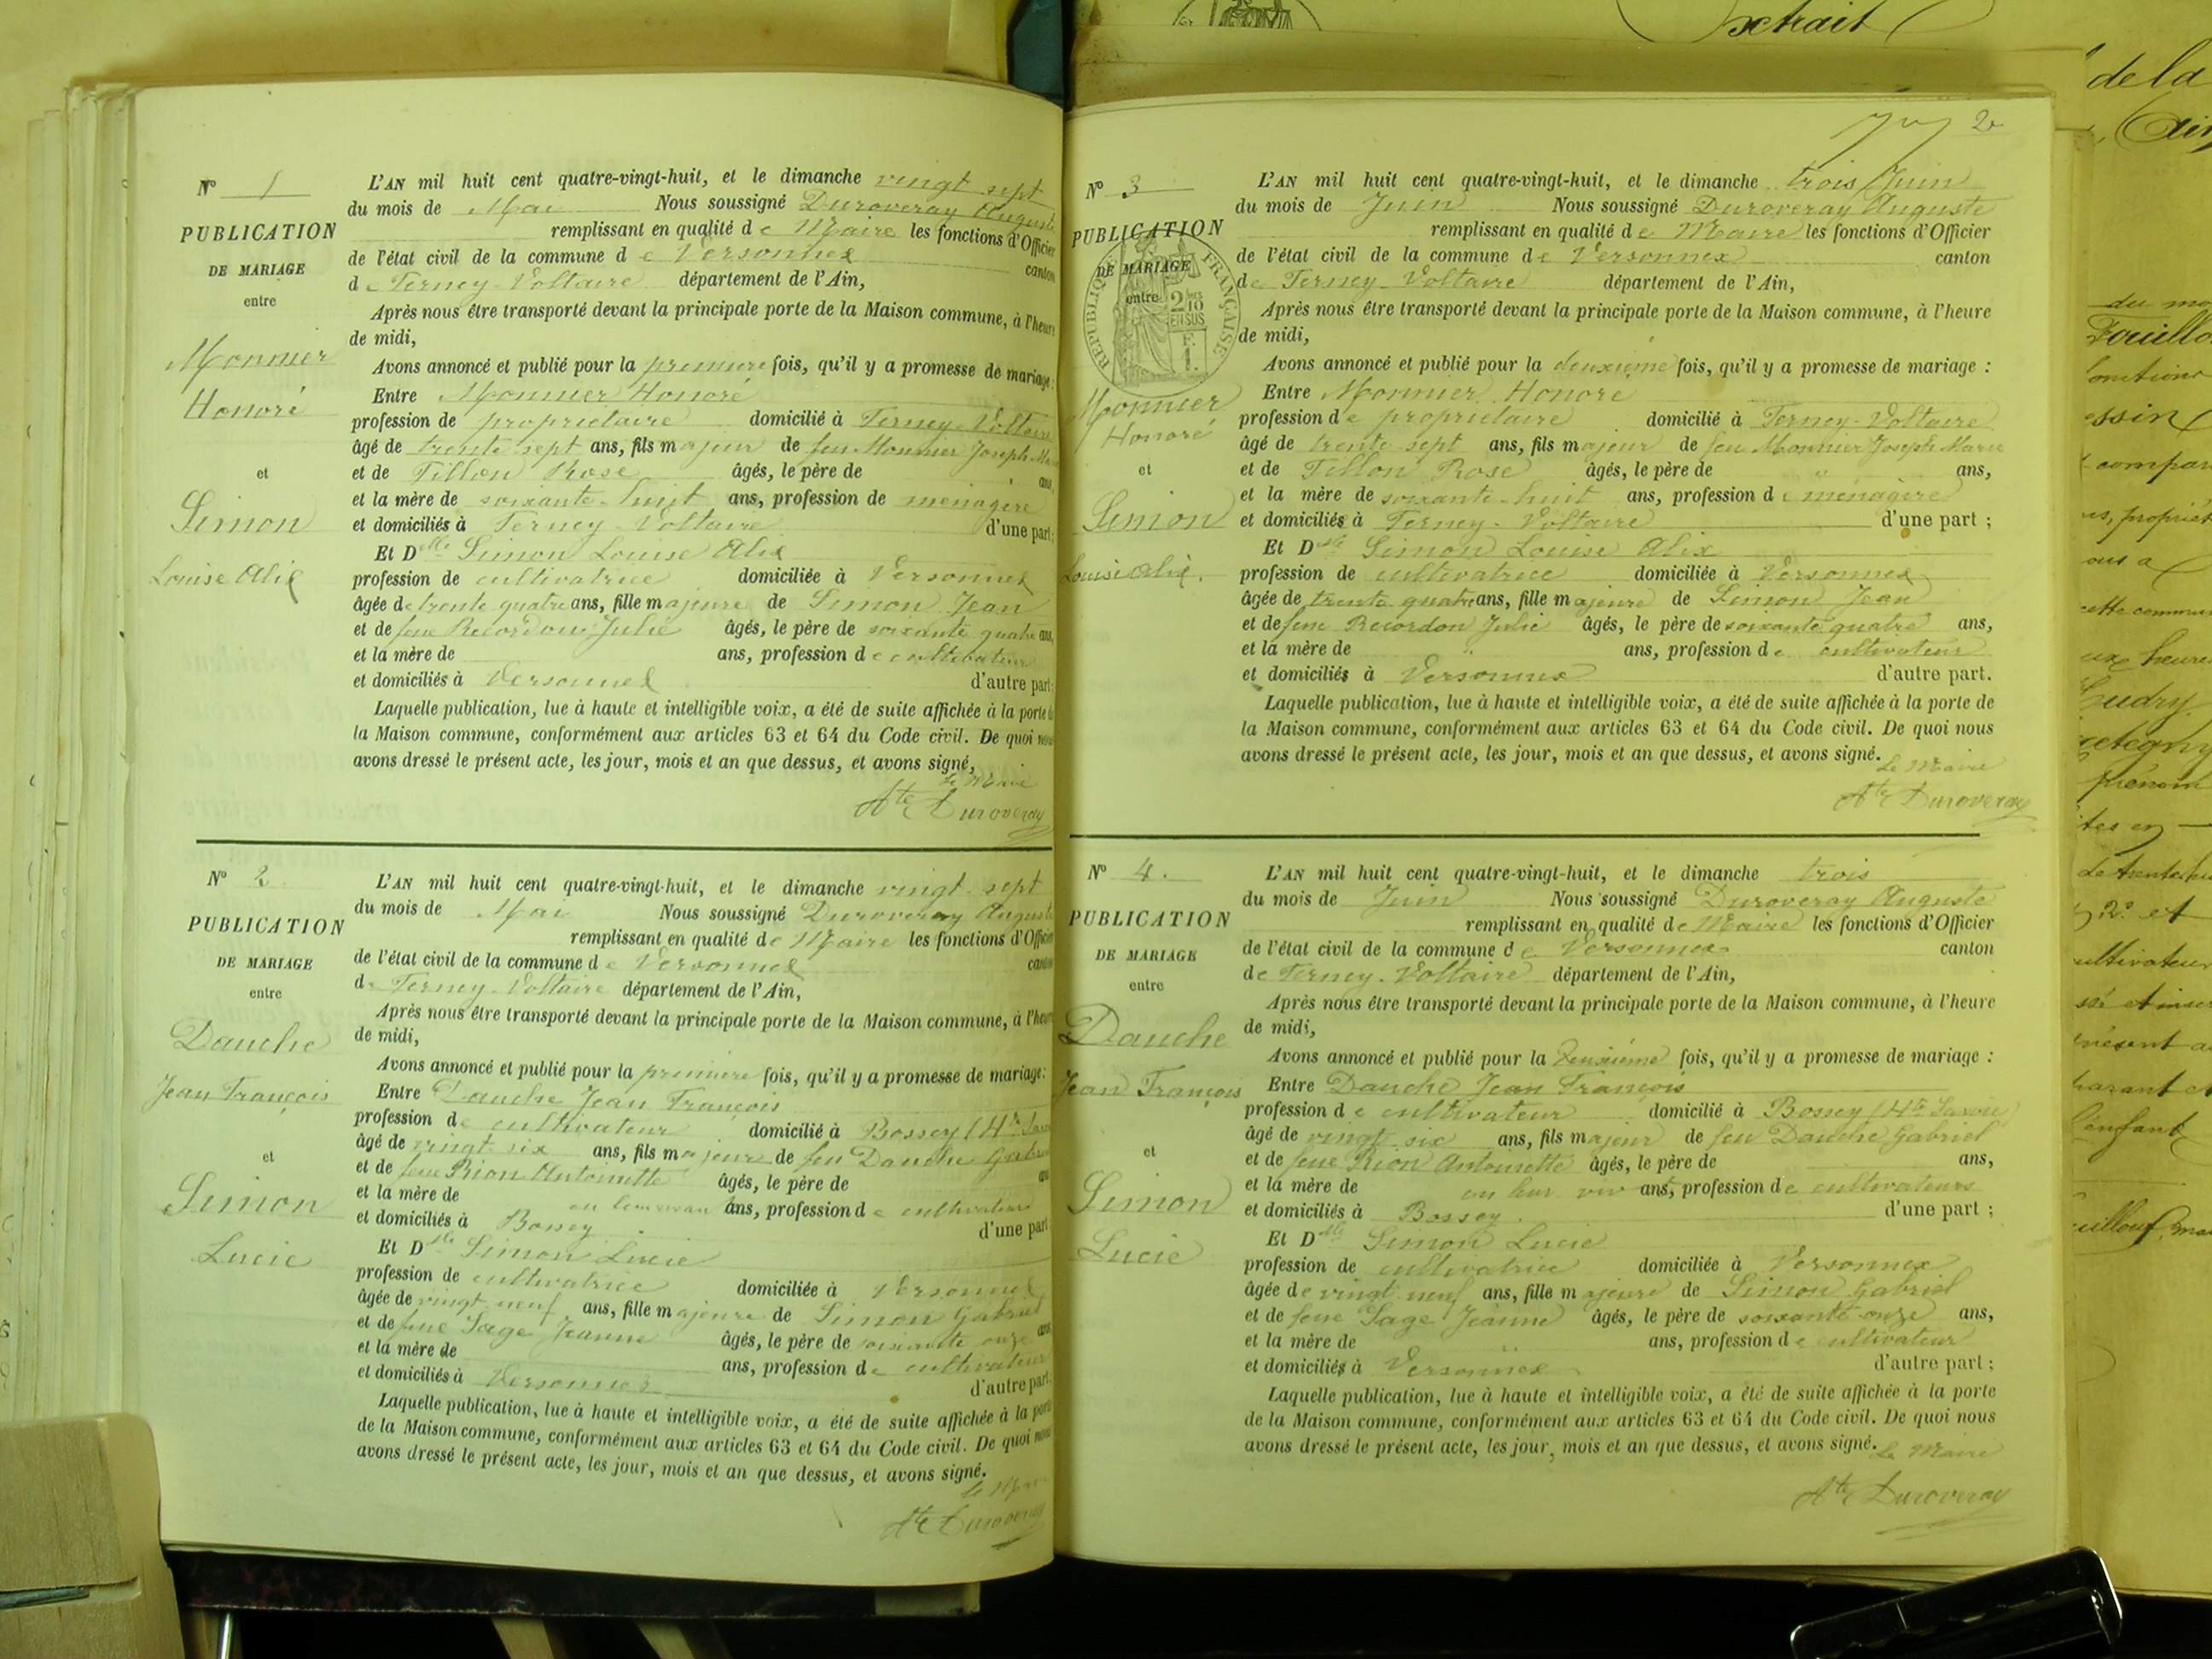 N° 1
PUBLICATION
DE MARIAGE
entre
Monnier
Honoré
et
Simon
Louise Alix
L'AN mil huit cent quatre-vingt-huit, et le dimanche vingt sept
du mois de Mai Nous soussigné Duroveray Auguste
remplissant en qualité de Maire les fonctions d'Officier
de l'état civil de la commune de Versonnex canton
de Ferney-Voltaire département de l'Ain,
Après nous être transporté devant la principale porte de la Maison commune, à l'heure
de midi,
Avons annoncé et publié pour la première fois, qu'il y a promesse de mariage :
Entre Monnier Honoré
profession de propriétaire domicilié à Ferney-Voltaire
âgé de trente sept ans, fils majeur de feu Monnier Joseph Ma
et de Tillon Rose âgés, le père de ans,
et la mère de soixante-huit ans, profession de ménagère
et domiciliés à Ferney-Voltaire d'une part;
Et Delle Simon Louise Alix
profession de cultivatrice domiciliée à Versonnex
âgée de trente quatre ans, fille majeure de Simon Jean
et de feue Recordon Julie âgés, le père de soixante quatre ans,
et la mère de ans, profession de cultivateur
et domiciliés à Versonnex d'autre part;
Laquelle publication, lue à haute et intelligible voix, a été de suite affichée à la porte de
la Maison commune, conformément aux articles 63 et 64 du Code civil. De quoi nous
avons dressé le présent acte, les jour, mois et an que dessus, et avons signé,
Le Maire
Ate Duroveray
N° 2
PUBLICATION
DE MARIAGE
entre
Dauche
Jean François
et
Simon
Lucie
L'AN mil huit cent quatre-vingt-huit, et le dimanche vingt sept
du mois de Mai Nous soussigné Duroveray Auguste
remplissant en qualité de Maire les fonctions d'Officier
de l'état civil de la commune de Versonnex canton
de Ferney-Voltaire département de l'Ain,
Après nous être transporté devant la principale porte de la Maison commune, à l'heure
de midi,
Avons annoncé et publié pour la première fois, qu'il y a promesse de mariage:
Entre Dauche Jean François
profession de cultivateur domicilié à Bossey (Hte Savo
âgé de vingt six ans, fils majeur de feu Dauche Gabri
et de feue Rion Antoinette âgés, le père de
et la mère de ans, profession de cultivateurs
et domiciliés à Bossey d'une part
Et Delle Simon Lucie
profession de cultivatrice domiciliée à Versonnex
âgée de vingt neuf ans, fille majeure de Simon Gabriel
et de feue Sage Jeanne âgés, le père de soixante onze ans
et la mère de ans, profession de cultivateur
et domiciliés à Versonnex d'autre part
Laquelle publication, lue à haute et intelligible voix, a été de suite affichée à la porte
de la Maison commune, conformément aux articles 63 et 64 du Code civil. De quoi nous
avons dressé le présent acte, les jour, mois et an que dessus, et avons signé.
Le Maire
Ate Duroveray
2
N° 3
PUBLICATION
DE MARIAGE
entre
RÉPUBLIQUE FRANÇAISE
2/10
EN SUS
F.
1.
Monnier
Honoré
et
Simon
Louise Alix.
L'AN mil huit cent quatre-vingt-huit, et le dimanche trois Juin
du mois de Juin Nous soussigné Duroveray Auguste
remplissant en qualité de Maire les fonctions d'Officier
de l'état civil de la commune de Versonnex canton
de Ferney-Voltaire département de l'Ain,
Après nous être transporté devant la principale porte de la Maison commune, à l'heure
de midi,
Avons annoncé et publié pour la deuxième fois, qu'il y a promesse de mariage :
Entre Monnier Honoré
profession de propriétaire domicilié à Ferney-Voltaire
âgé de trente sept ans, fils majeur de feu Monnier Joseph Marie
et de Tillon Rose âgés, le père de " ans,
et la mère de soixante-huit ans, profession de ménagère
et domiciliés à Ferney-Voltaire d'une part ;
Et Delle Simon Louise Alix
profession de cultivatrice domiciliée à Versonnex
âgée de trente quatre ans, fille majeure de Simon Jean
et de feue Recordon Julie âgés, le père de soixante quatre ans,
et la mère de " ans, profession de cultivateur
et domiciliés à Versonnex d'autre part.
Laquelle publication, lue à haute et intelligible voix, a été de suite affichée à la porte de
la Maison commune, conformément aux articles 63 et 64 du Code civil. De quoi nous
avons dressé le présent acte, les jour, mois et an que dessus, et avons signé.
Le Maire
Ate Duroveray
N° 4.
PUBLICATION
DE MARIAGE
entre
Dauche
Jean François
et
Simon
Lucie
L'AN mil huit cent quatre-vingt-huit, et le dimanche trois
du mois de Juin Nous soussigné Duroveray Auguste
remplissant en qualité de Maire les fonctions d'Officier
de l'état civil de la commune de Versonnex canton
de Ferney-Voltaire département de l'Ain,
Après nous être transporté devant la principale porte de la Maison commune, à l'heure
de midi,
Avons annoncé et publié pour la deuxième fois, qu'il y a promesse de mariage :
Entre Dauche Jean François
profession de cultivateur domicilié à Bossey (Hte Savoie)
âgé de vingt six ans, fils majeur de feu Dauche Gabriel
et de feue Rion Antoinette âgés, le père de ans,
et la mère de en leur viv ans, profession de cultivateurs
et domiciliés à Bossey. d'une part ;
Et Delle Simon Lucie
profession de cultivatrice domiciliée à Versonnex
âgée de vingt neuf ans, fille majeure de Simon Gabriel
et de feue Sage Jeanne âgés, le père de soixante onze ans,
et la mère de " ans, profession de cultivateur
et domiciliés à Versonnex d'autre part ;
Laquelle publication, lue à haute et intelligible voix, a été de suite affichée à la porte
de la Maison commune, conformément aux articles 63 et 64 du Code civil. De quoi nous
avons dressé le présent acte, les jour, mois et an que dessus, et avons signé.
Le Maire
Ate Duroveray
Extrait
de la
du mo
essin
compar
propriét
heure
prénom
2° et
présent
enfant